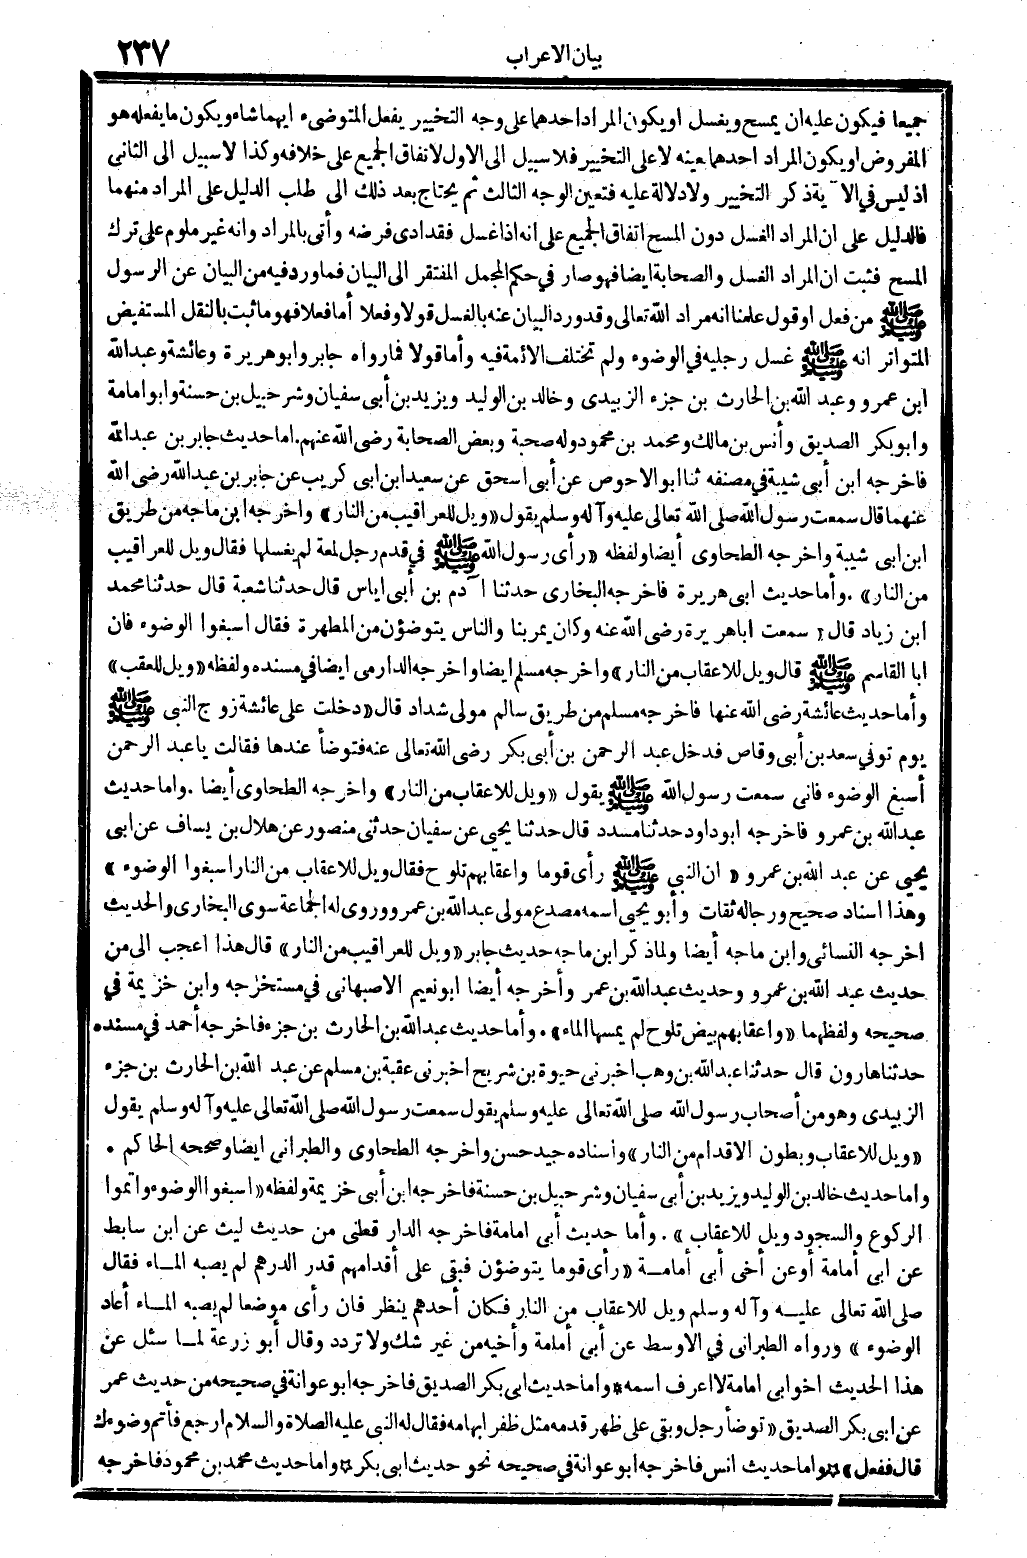 بيان الاعراب
٢٣٧
جميعا فيكون عليه ان يمسح ويغسل او يكون المراد احدهما على وجه التخيير يفعل المتوضىء ايهما شاء ويكون ما يفعله هو
المفروض او يكون المراد احدهما بعينه لا على التخيير فلا سبيل الى الاول لاتفاق الجميع على خلافه وكذا لا سبيل الى الثانى
اذ ليس في الآية ذكر التخيير ولا دلالة عليه فتعين الوجه الثالث ثم يحتاج بعد ذلك الى طلب الدليل على المراد منهما
فالدليل على ان المراد الغسل دون المسح اتفاق الجميع على انه اذا غسل فقد ادى فرضه وأتى بالمراد وانه غير ملوم على ترك
المسح فثبت ان المراد الغسل والصحابة ايضا فهو صار في حكم المجمل المفتقر الى البيان فما ورد فيه من البيان عن الرسول
ﷺ من فعل او قول علمنا انه مراد الله تعالى وقد ورد البيان عنه بالغسل قولا وفعلا أما فعلا فهو ما ثبت بالنقل المستفيض
المتواتر انه ﷺ غسل رجليه في الوضوء ولم تختلف الائمة فيه وأما قولا فما رواه جابر وابو هريرة وعائشة وعبد الله
ابن عمرو وعبد الله بن الحارث بن جزء الزبيدى وخالد بن الوليد ويزيد بن أبى سفيان وشرحبيل بن حسنة وابو امامة
وابو بكر الصديق وأنس بن مالك ومحمد بن محمود وله صحبة وبعض الصحابة رضى الله عنهم . اما حديث جابر بن عبد الله
فاخرجه ابن أبى شيبة في مصنفه ثنا ابو الاحوص عن أبى اسحق عن سعيد ابن ابى كريب عن جابر بن عبد الله رضى الله
عنهما قال سمعت رسول الله صلى الله تعالى عليه وآله وسلم يقول «ويل للعراقيب من النار» واخرجه ابن ماجه من طريق
ابن ابى شيبة واخرجه الطحاوى أيضا ولفظه «رأى رسول الله ﷺ في قدم رجل لمعة لم يغسلها فقال ويل للعراقيب
من النار» . وأما حديث ابى هريرة فاخرجه البخارى حدثنا آدم بن أبى اياس قال حدثنا شعبة قال حدثنا محمد
ابن زياد قال: سمعت اباهريرة رضى الله عنه وكان يمر بنا والناس يتوضؤن من المطهرة فقال اسبغوا الوضوء فان
ابا القاسم ﷺ قال ويل للاعقاب من النار» واخرجه مسلم ايضا واخرجه الدارمى ايضا في مسنده ولفظه «ويل للعقب»
وأما حديث عائشة رضى الله عنها فاخرجه مسلم من طريق سالم مولى شداد قال «دخلت على عائشة زوج النبى ﷺ
يوم توفي سعد بن أبى وقاص فدخل عبد الرحمن بن أبى بكر رضى الله تعالى عنه فتوضأ عندها فقالت يا عبد الرحمن
أسبغ الوضوء فانى سمعت رسول الله ﷺ يقول «ويل للاعقاب من النار» واخرجه الطحاوى أيضا . واما حديث
عبد الله بن عمرو فاخرجه ابو داود حدثنا مسدد قال حدثنا يحيى عن سفيان حدثنى منصور عن هلال بن يساف عن ابى
يحيى عن عبد الله بن عمرو « ان النبى ﷺ رأى قوما واعقابهم تلوح فقال ويل للاعقاب من النار اسبغوا الوضوء »
وهذا اسناد صحيح ورجاله ثقات وأبو يحيى اسمه مصدع مولى عبد الله بن عمرو وروى له الجماعة سوى البخارى والحديث
اخرجه النسائى وابن ماجه أيضا ولما ذكر ابن ماجه حديث جابر «ويل للعراقيب من النار» قال هذا اعجب الى من
حديث عبد الله بن عمرو وحديث عبد الله بن عمر وأخرجه أيضا ابو نعيم الاصبهانى في مستخرجه وابن خزيمة في
صحيحه ولفظهما «واعقابهم بيض تلوح لم يمسها الماء» . وأما حديث عبد الله بن الحارث بن جزء فاخرجه أحمد في مسنده
حدثنا هارون قال حدثنا عبد الله بن وهب اخبرنى حيوة بن شريح اخبرنى عقبة بن مسلم عن عبد الله بن الحارث بن جزء
الزبيدى وهو من أصحاب رسول الله صلى الله تعالى عليه وسلم يقول سمعت رسول الله صلى الله تعالى عليه وآله وسلم يقول
«ويل للاعقاب وبطون الاقدام من النار» واسناده جيد حسن واخرجه الطحاوى والطبرانى ايضا وصححه الحاكم .
واما حديث خالد بن الوليد ويزيد بن أبى سفيان وشرحبيل بن حسنة فاخرجه ابن أبى خزيمة ولفظه «اسبغوا الوضوء واتموا
الركوع والسجود ويل للاعقاب» . وأما حديث أبى امامة فاخرجه الدار قطنى من حديث ليث عن ابن سابط
عن ابى أمامة أو عن أخى أبى أمامة «رأى قوما يتوضؤن فبقى على أقدامهم قدر الدرهم لم يصبه الماء فقال
صلى الله تعالى عليه وآله وسلم ويل للاعقاب من النار فكان أحدهم ينظر فان رأى موضعا لم يصبه الماء أعاد
الوضوء » ورواه الطبرانى في الاوسط عن أبى أمامة وأخيه من غير شك ولا تردد وقال أبو زرعة لما سئل عن
هذا الحديث اخو ابى امامة لا اعرف اسمه * واما حديث ابى بكر الصديق فاخرجه ابو عوانة في صحيحه من حديث عمر
عن ابى بكر الصديق «توضأ رجل وبقى على ظهر قدمه مثل ظفر ابهامه فقال له النبى عليه الصلاة والسلام ارجع فأتم وضوءك
قال ففعل» * واما حديث انس فاخرجه ابو عوانة في صحيحه نحو حديث ابى بكر * واما حديث محمد بن محمود فاخرجه